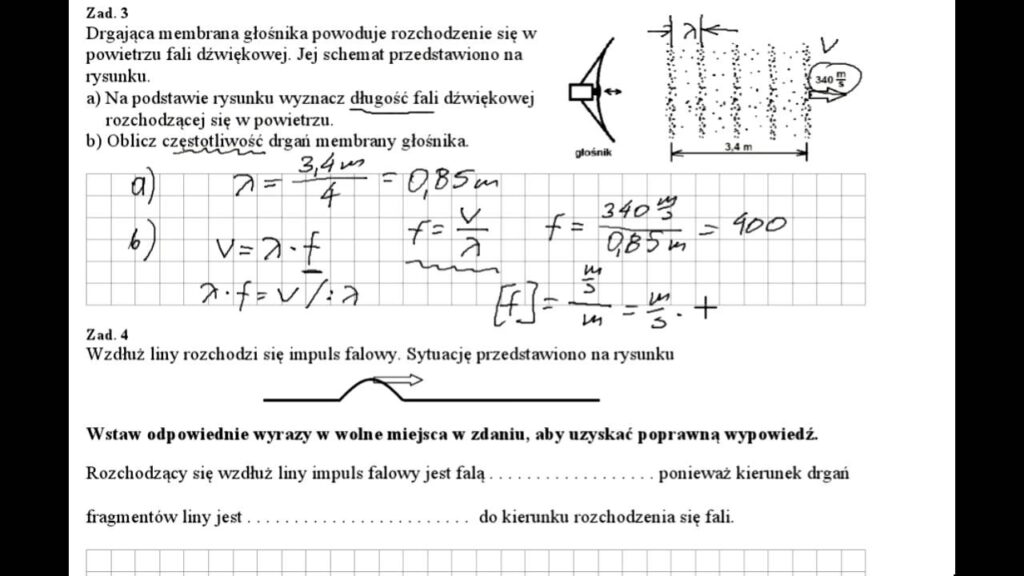 Zad. 3
Drgająca membrana głośnika powoduje rozchodzenie się w
powietrzu fali dźwiękowej. Jej schemat przedstawiono na
rysunku.
a) Na podstawie rysunku wyznacz długość fali dźwiękowej
rozchodzącej się w powietrzu.
b) Oblicz częstotliwość drgań membrany głośnika.
λ
V
340 m/s
głośnik
3,4 m
a) λ = 3,4m/4 = 0,85m
b) V = λ · f f = V/λ f = 340 m/s / 0,85m = 400
λ · f = V /: λ [f] = m/s / m = m/s · +
Zad. 4
Wzdłuż liny rozchodzi się impuls falowy. Sytuację przedstawiono na rysunku
Wstaw odpowiednie wyrazy w wolne miejsca w zdaniu, aby uzyskać poprawną wypowiedź.
Rozchodzący się wzdłuż liny impuls falowy jest falą . . . . . . . . . . . . . . . . . . ponieważ kierunek drgań
fragmentów liny jest . . . . . . . . . . . . . . . . . . . . . . . . do kierunku rozchodzenia się fali.